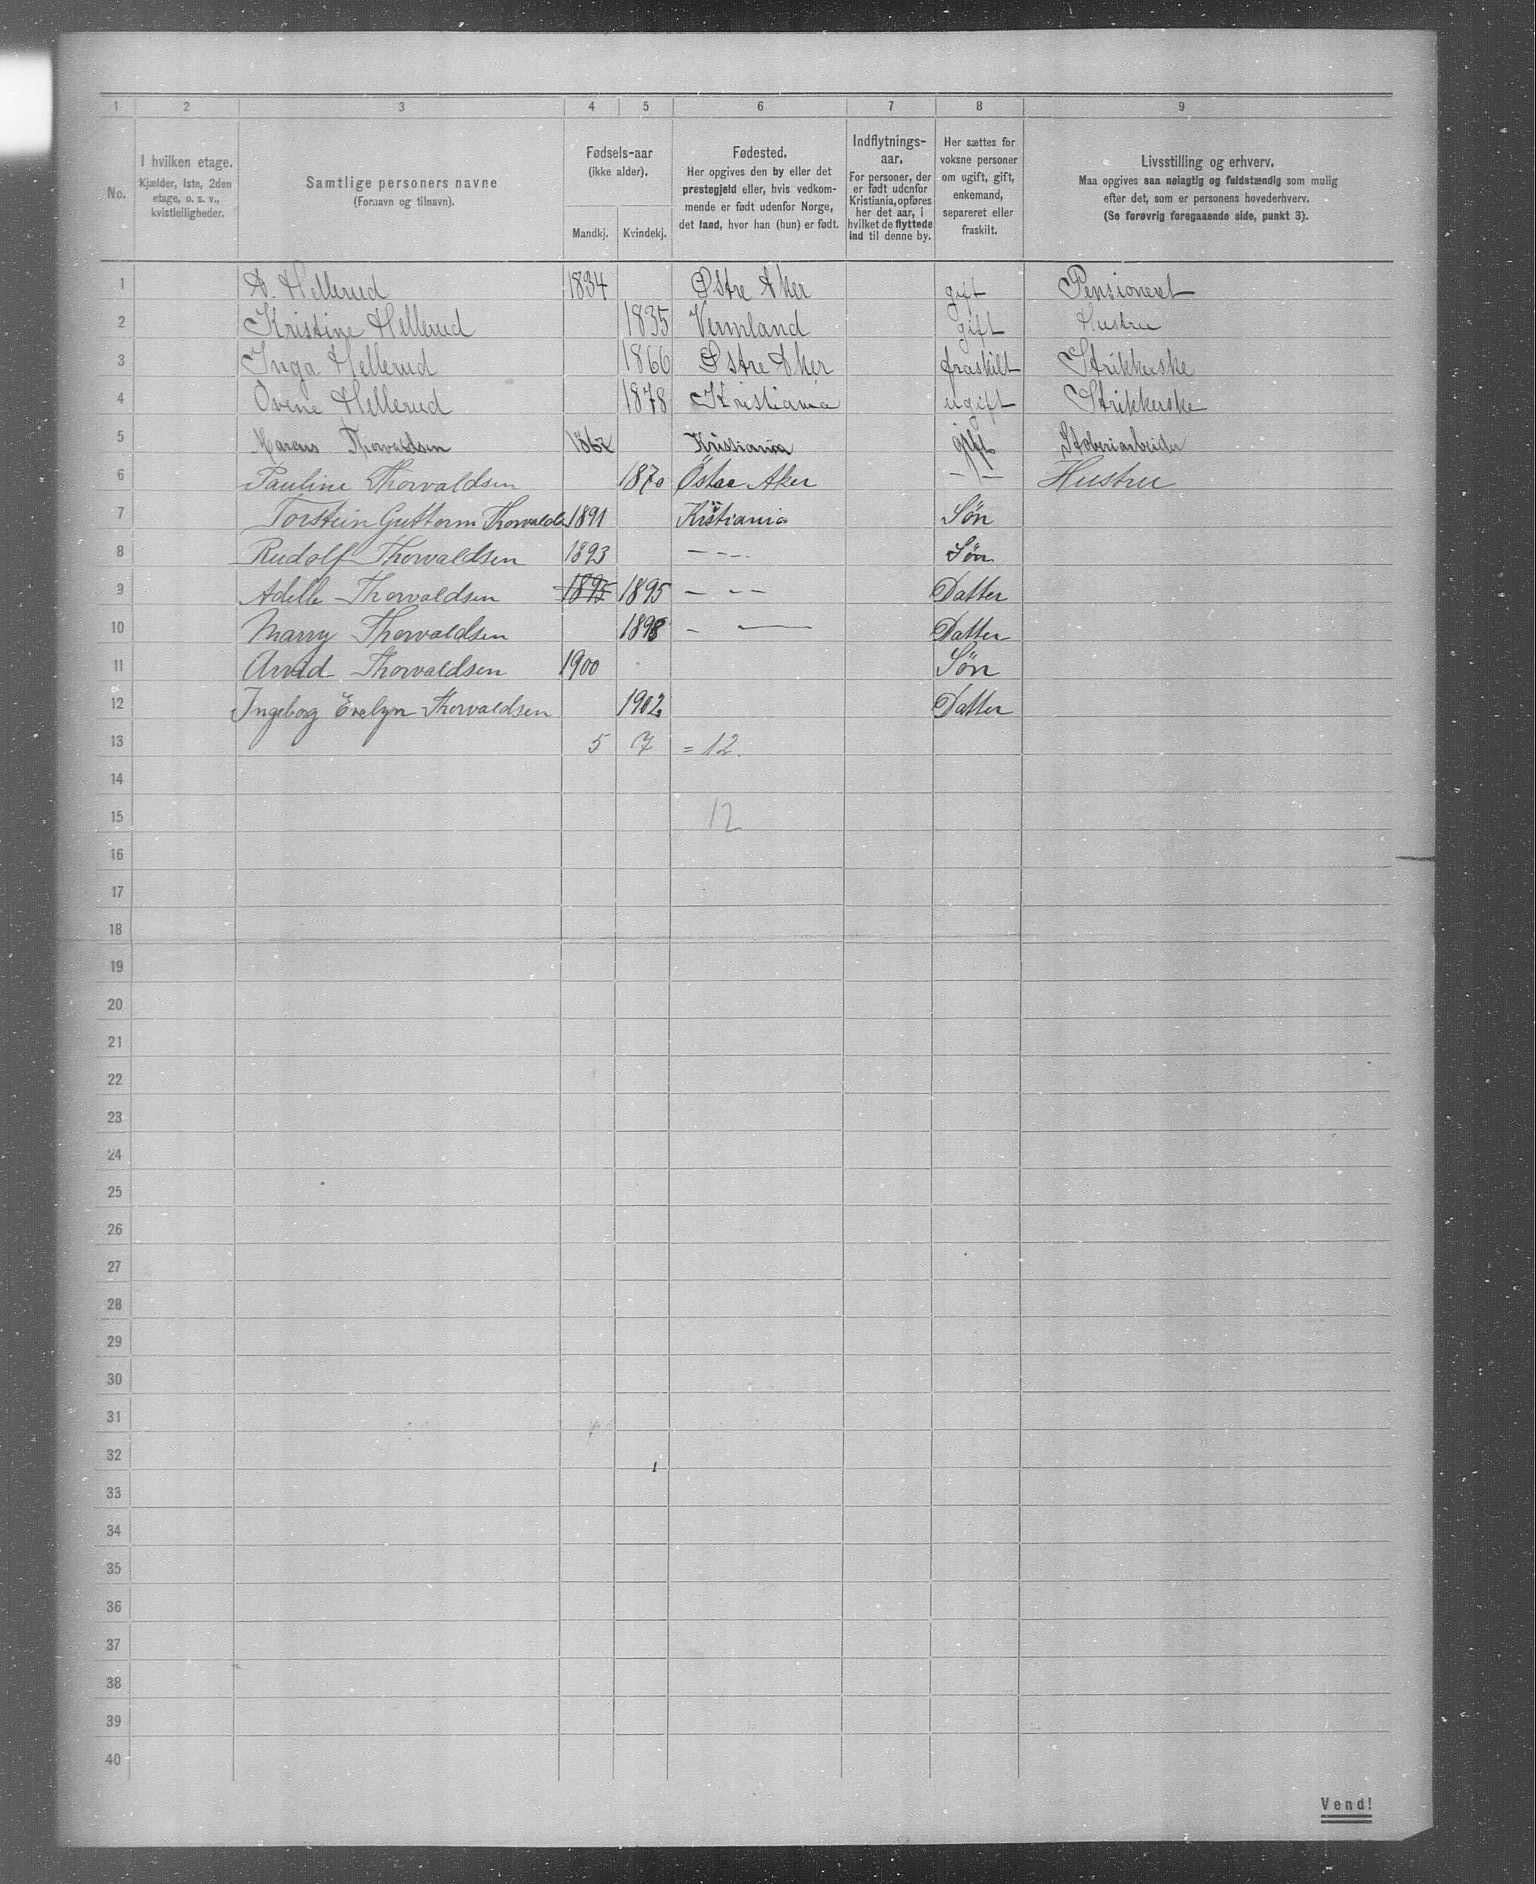 1 2 3 4 5 6 7 8 9
No.
I hvilken etage.
Kjælder, 1ste, 2den
etage, o. s. v.,
kvistleiligheder.
Samtlige personers navne
(Fornavn og tilnavn).
Fødsels-aar
(ikke alder).
Mandkj. Kvindekj.
Fødested.
Her opgives den by eller det
prestegjeld eller, hvis vedkom-
mende er født udenfor Norge,
det land, hvor han (hun) er født.
Indflytnings-
aar.
For personer, der
er født udenfor
Kristiania, opføres
her det aar, i
hvilket de flyttede
ind til denne by.
Her sættes for
voksne personer
om ugift, gift,
enkemand,
separeret eller
fraskilt.
Livsstilling og erhverv.
Maa opgives saa nøiagtig og fuldstændig som mulig
efter det, som er personens hovederhverv.
(Se forøvrig foregaaende side, punkt 3).
1 A. Hellerud 1834 Østre Aker gift Pensionert
2 Kristine Hellerud 1835 Vermland gift Hustru
3 Inga Hellerud 1866 Østre Aker fraskilt Strikkerske
4 Ovine Hellerud 1878 Kristiania ugift Strikkerske
5 Marcus Thorvaldsen Kristiania gift Støberiarbeider
6 Pauline Thorvaldsen 1870 Östre Aker — — Hustru
7 Torstein Guttorm Thorvalds 1891 Kristiania Søn
8 Rudolf Thorvaldsen 1893 — - - - Søn
9 Adelle Thorvaldsen 1895 1895 — - — Datter
10 Marry Thorvaldsen 1898 - — Datter
11 Arvid Thorvaldsen 1900 Søn
12 Ingeborg Evelyn Thorvaldsen 1902 Datter
13 5 7 = 12.
14
15 12
16
17
18
19
20
21
22
23
24
25
26
27
28
29
30
31
32
33
34
35
36
37
38
39
40
Vend!